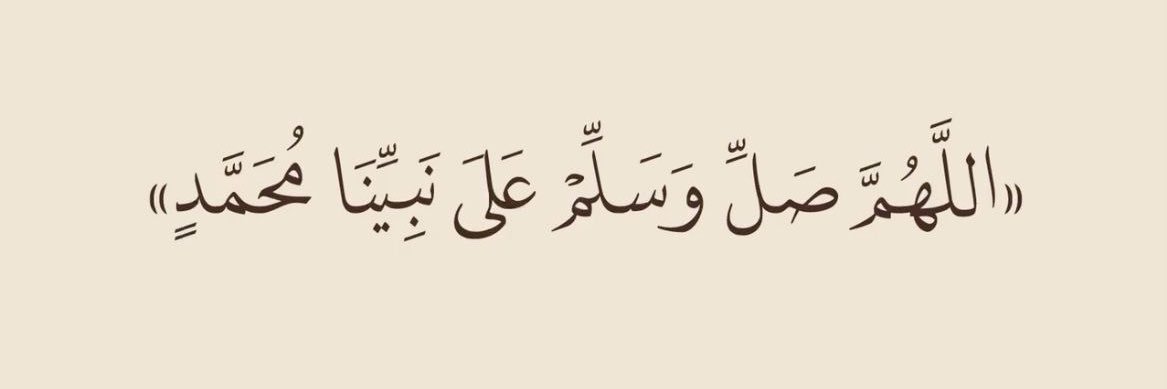 «اللَّهُمَّ صَلِّ وَسَلِّمْ عَلَى نَبِيِّنَا مُحَمَّدٍ»